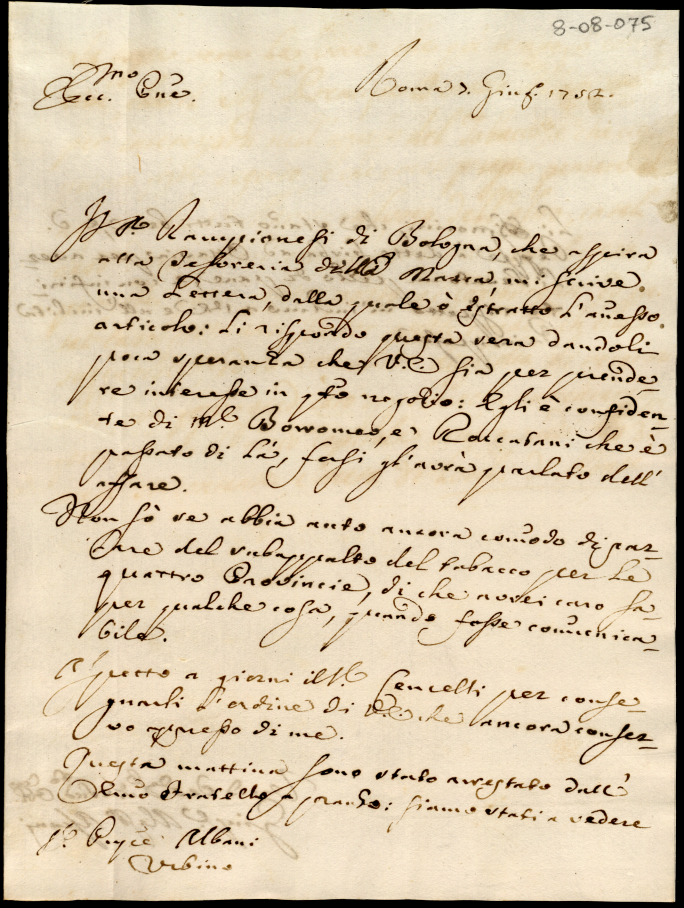 8-08-075
Ecc.mo Pne.
Roma 7. Giug. 1752.
Il Sr. Rampionesi di Bologna, che aspira
alla Tesoreria della Marca, mi scrive
una Lettera, dalla quale è estratto l'anesso
articolo: Li rispondo questa sera dandoli
poca speranza che V.E. sia per prende-
re interesse in qto negozio: Egli è confiden-
te di Mr. Borromeo, e Roccatani che è
passato di Là, forsi gl'avrà parlato dell'
affare.
Non sò se abbia auto ancora comodo di par-
lare del subappalto del tabacco per Le
quattro Provincie, di che avrei caro sa-
per qualche cosa, quando fosse comunica-
bile.
Aspetto a giorni il Sr. Cencelli per conse-
gnarli l'ordine di V.E. che ancora conser-
vo presso di me.
Questa mattina sono stato arrestato dall'
Emo Fratello a pranso: siamo stati a vedere
Sr. Prpe Albani
Urbino